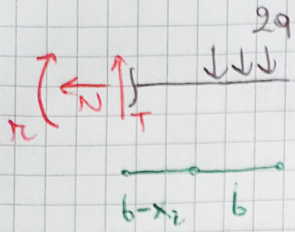 2q
N
T
b-x₂ b